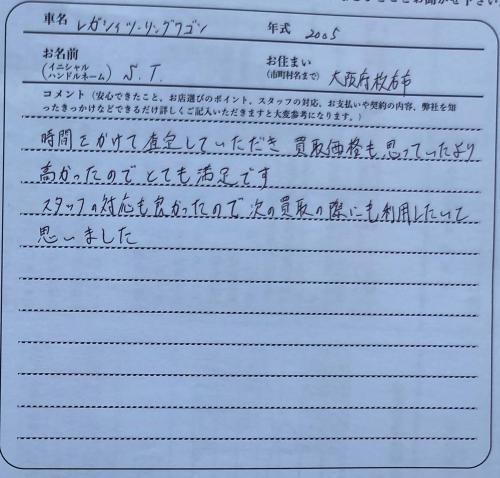 車名 レガシィツーリングワゴン 年式 2005
お名前 お住まい
(イニシャル ハンドルネーム) S.T. (市町村名まで) 大阪府枚方市
コメント (安心できたこと、お店選びのポイント、スタッフの対応、お支払いや契約の内容、弊社を知
ったきっかけなどできるだけ詳しくご記入いただきますと大変参考になります。)
時間をかけて査定していただき 買取価格も思っていたより
高かったので とても満足です
スタッフの対応も良かったので次の買取の際にも利用したいと
思いました